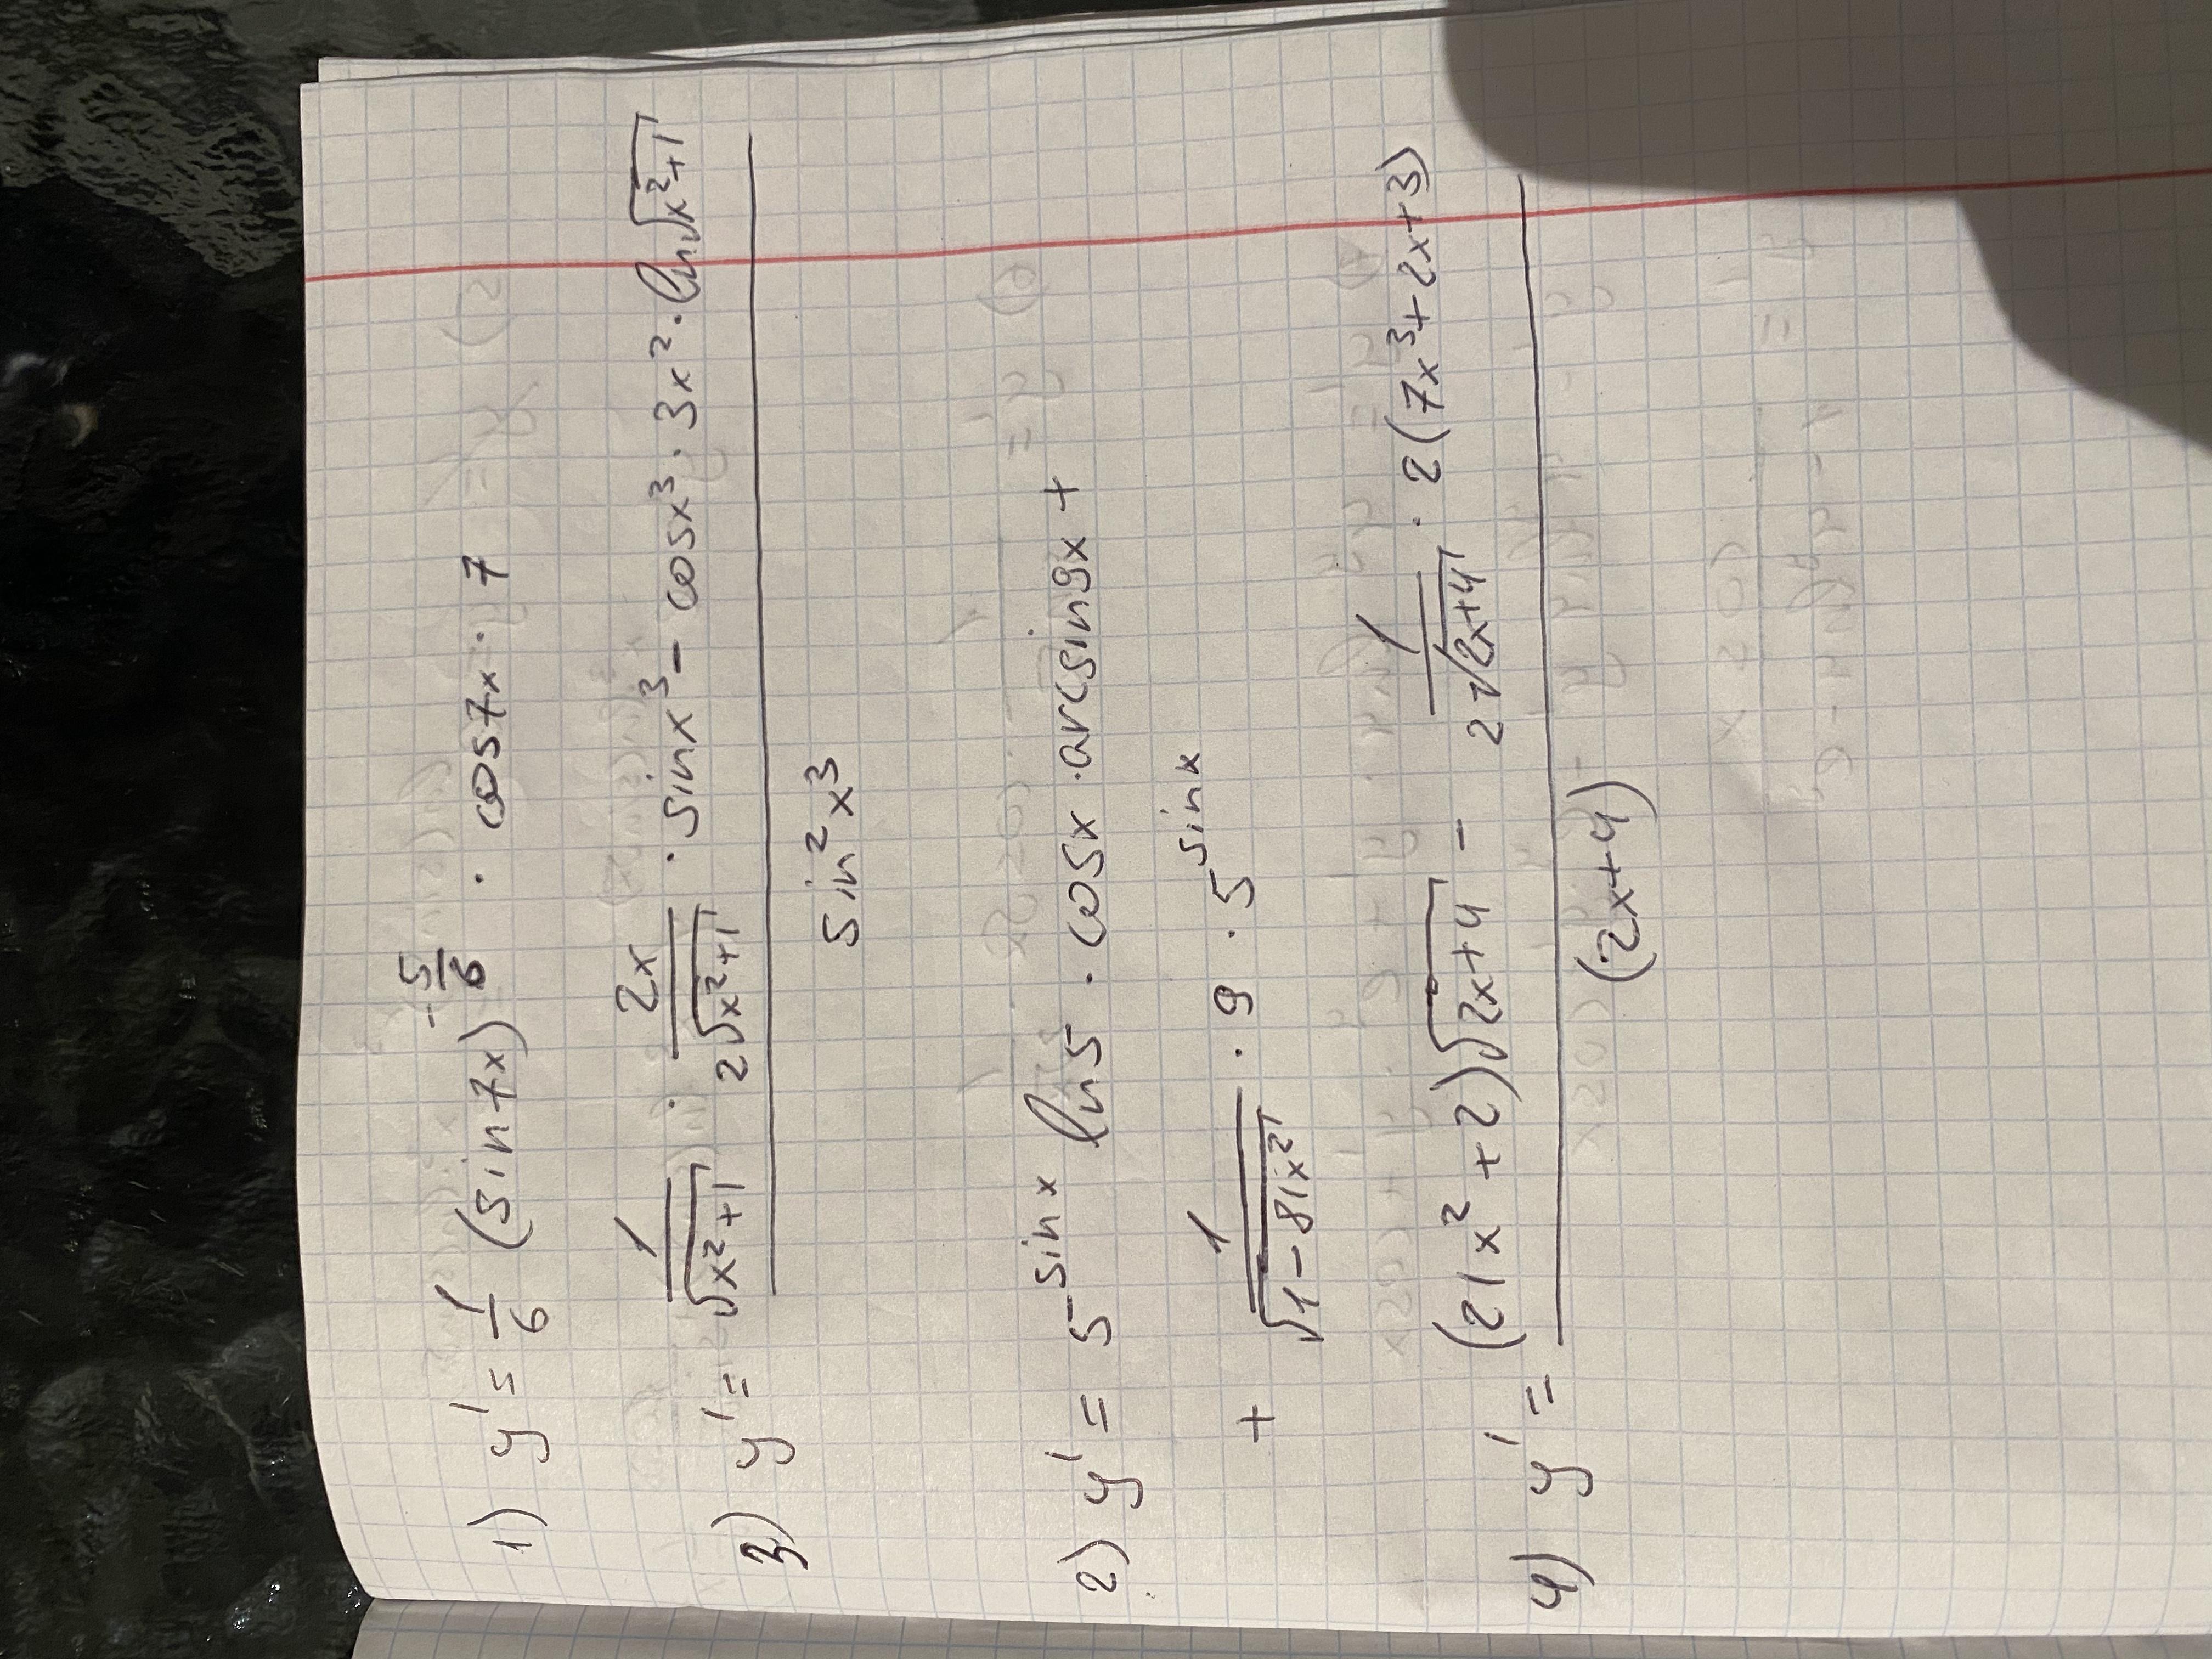 1) y' = 1/6 (sin7x)^(-5/6) · cos7x · 7
3) y' = (1/√(x²+1) · 2x/(2√(x²+1)) · sinx³ - cosx³ · 3x² · ln√(x²+1)) / sin²x³
2) y' = 5^(sinx) ln5 · cosx · arcsin9x +
+ 1/√(1-81x²) · 9 · 5^(sinx)
4) y' = ((21x²+2)√(2x+4) - 1/(2√(2x+4)) · 2(7x³+2x+3)) / (2x+4)